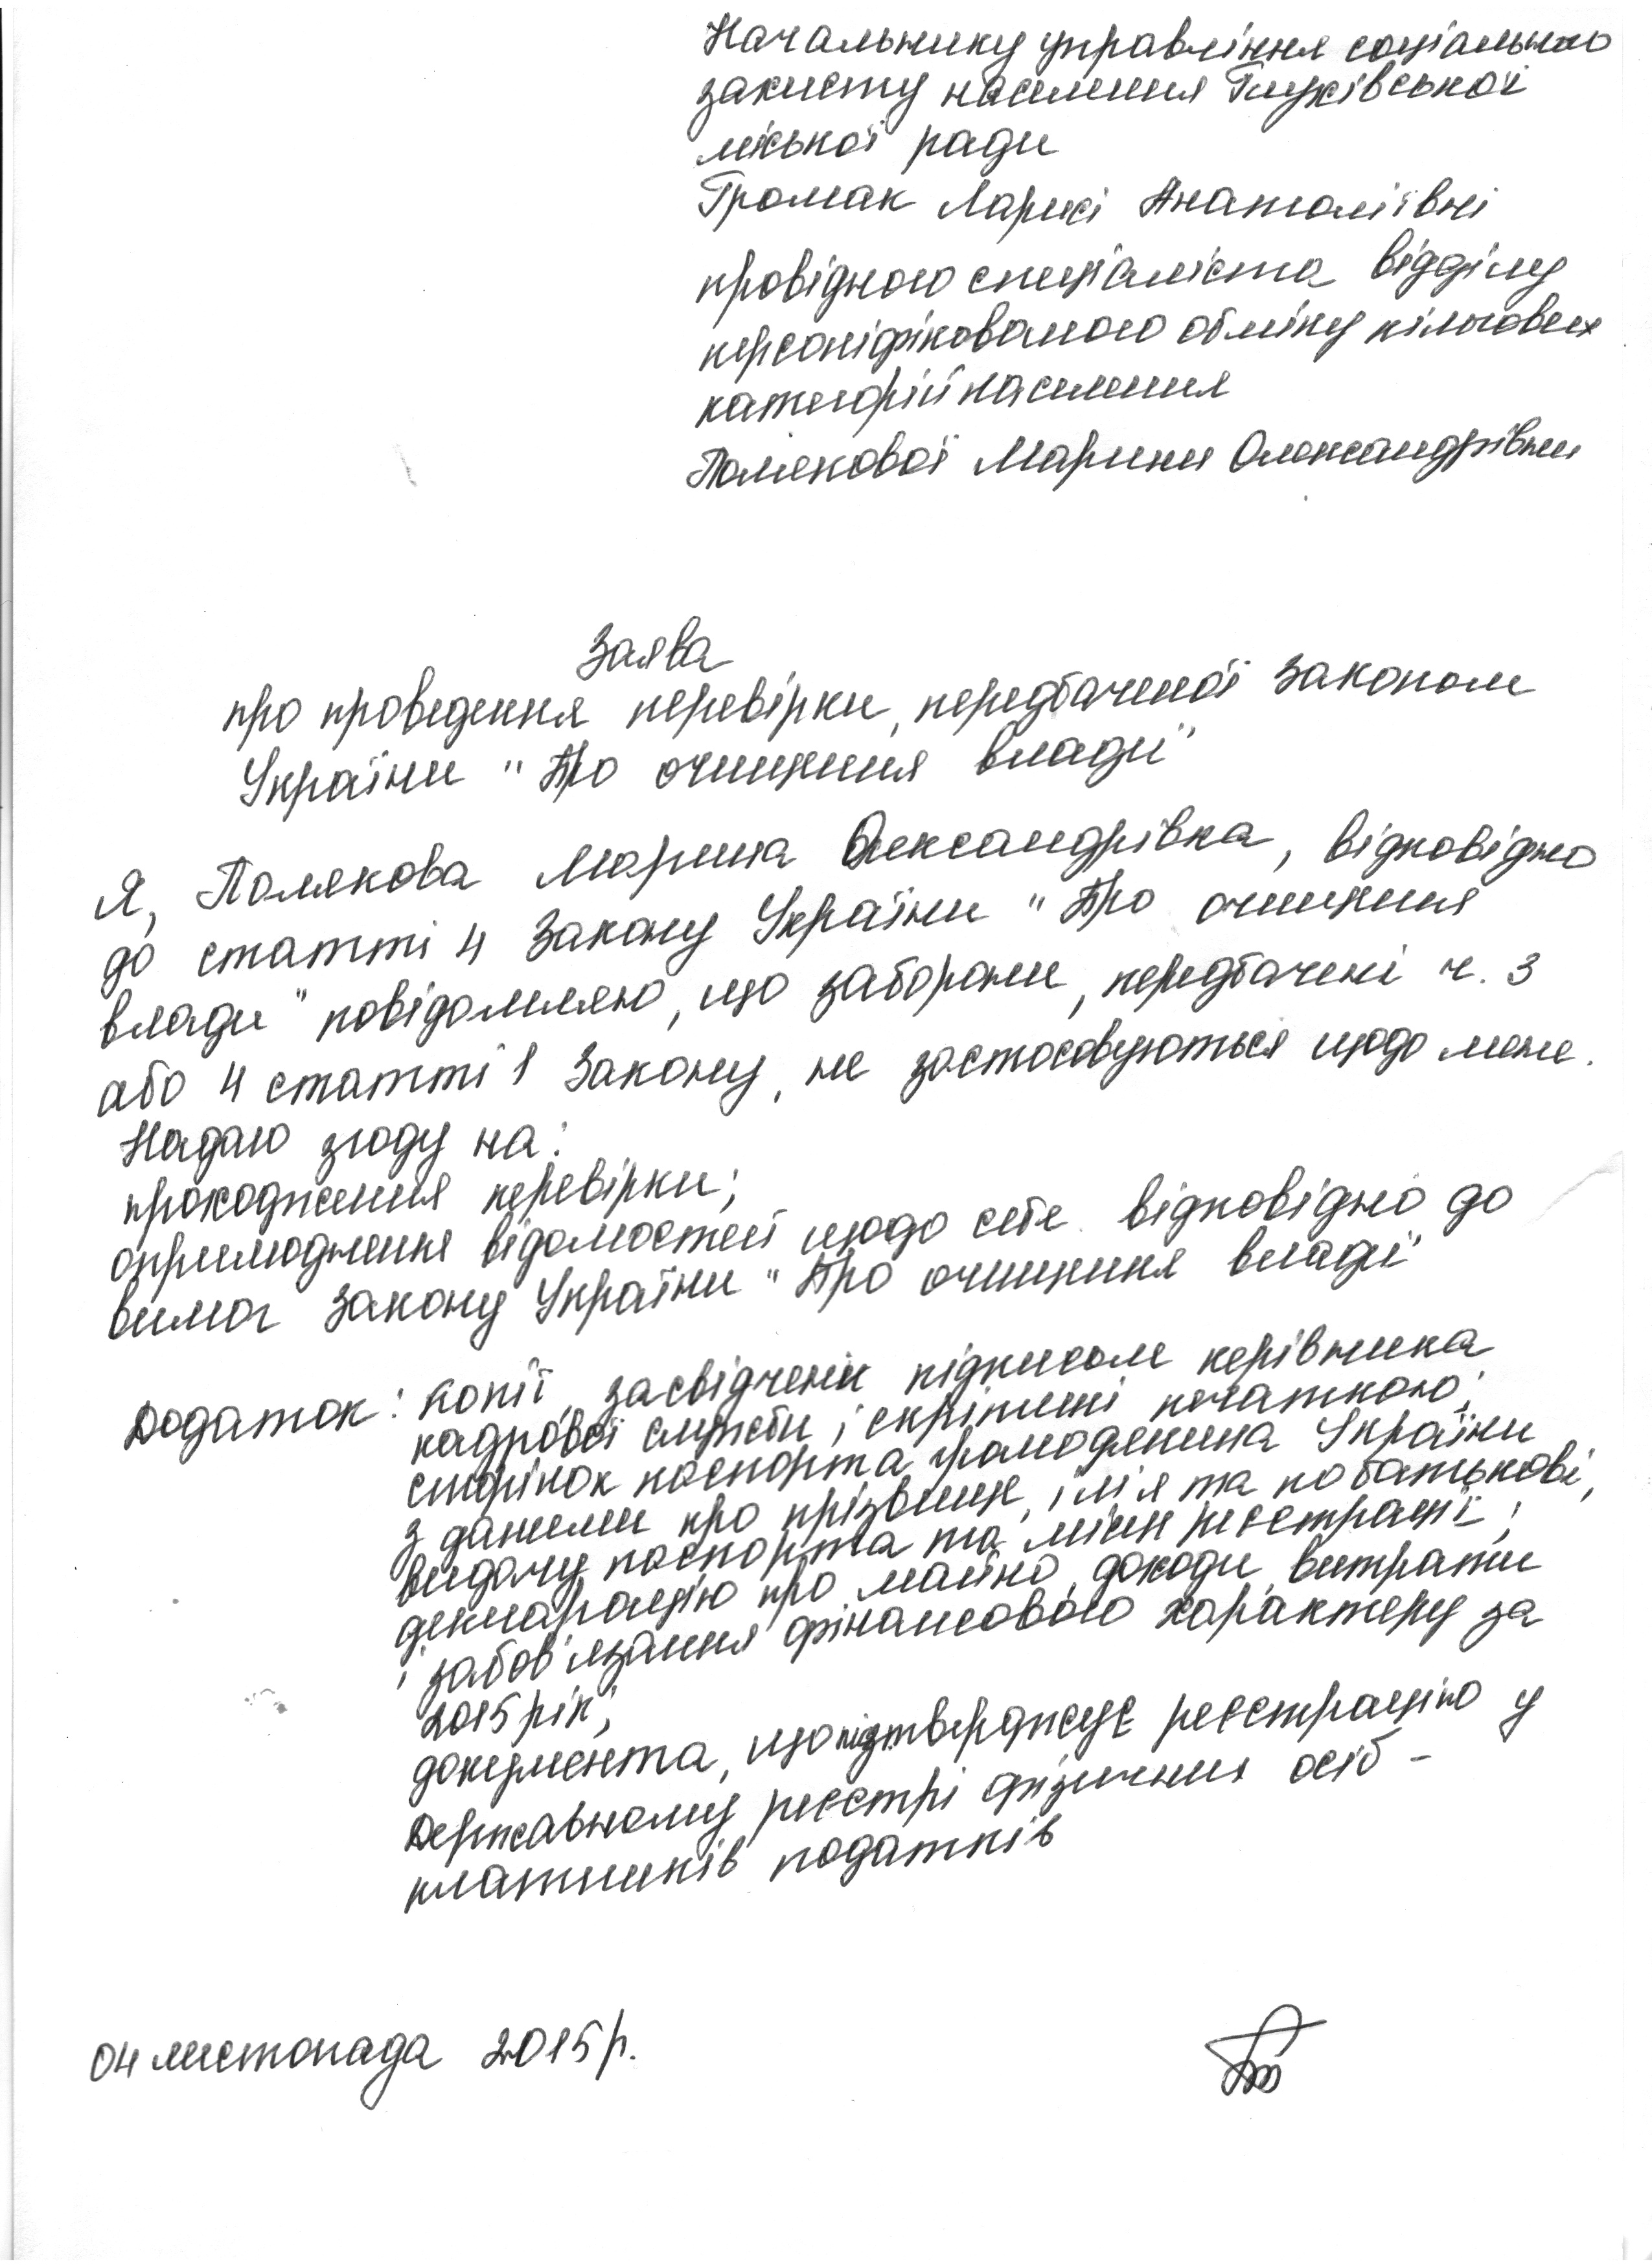 Начальнику управління соціального
захисту населення Глухівської
міської ради
Громак Ларисі Анатоліївні
провідного спеціаліста відділу
персоніфікованого обліку пільгових
категорій населення
Полякової Марини Олександрівни
Заява
про проведення перевірки, передбаченої Законом
України "Про очищення влади"
Я, Полякова Марина Олександрівна, відповідно
до статті 4 Закону України "Про очищення
влади" повідомляю, що заборони, передбачені ч. 3
або 4 статті 1 Закону, не застосовуються щодо мене.
Надаю згоду на:
проходження перевірки;
оприлюднення відомостей щодо себе відповідно до
вимог Закону України "Про очищення влади"
Додаток: копії, засвідчені підписом керівника
кадрової служби і скріплені печаткою:
сторінок паспорта громадянина України
з даними про прізвище, ім'я та по батькові,
видачу паспорта та місце реєстрації;
декларацію про майно, доходи, витрати
і забов'язання фінансового характеру за
2015 рік;
документа, що підтверджує реєстрацію у
Державному реєстрі фізичних осіб -
платників податків
04 листопада 2015р.